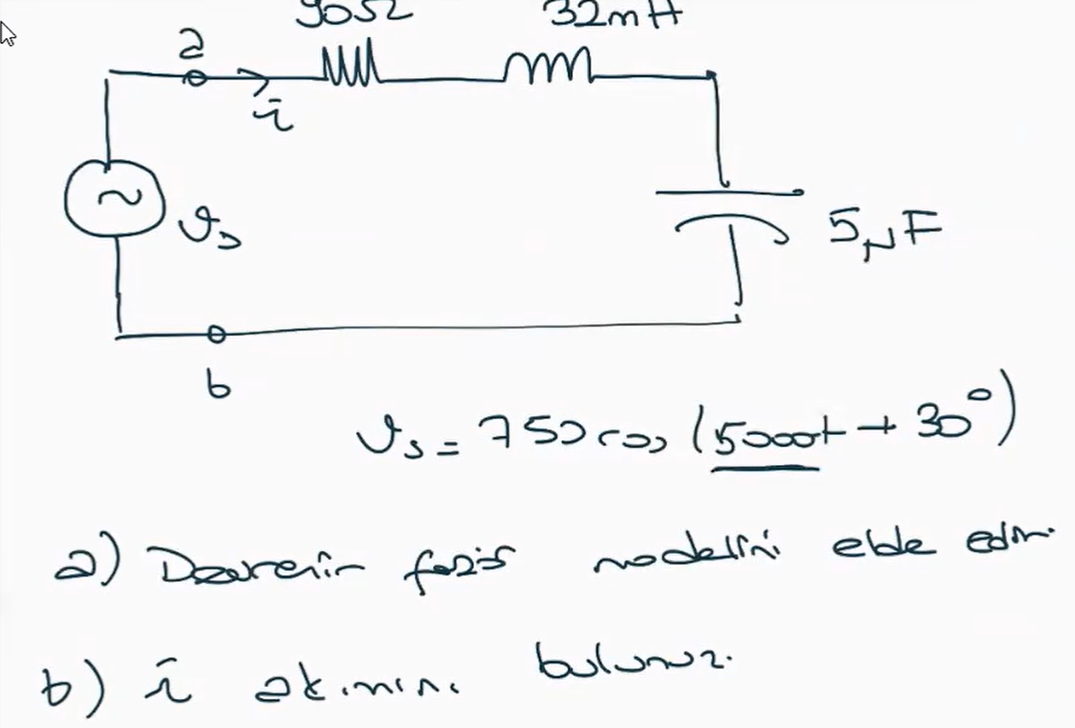 90Ω 32mH
a
i
5μF
vs
b
vs = 750 cos (5000t + 30°)
a) Devrenin fazör modelini elde edin.
b) i akımını bulunuz.